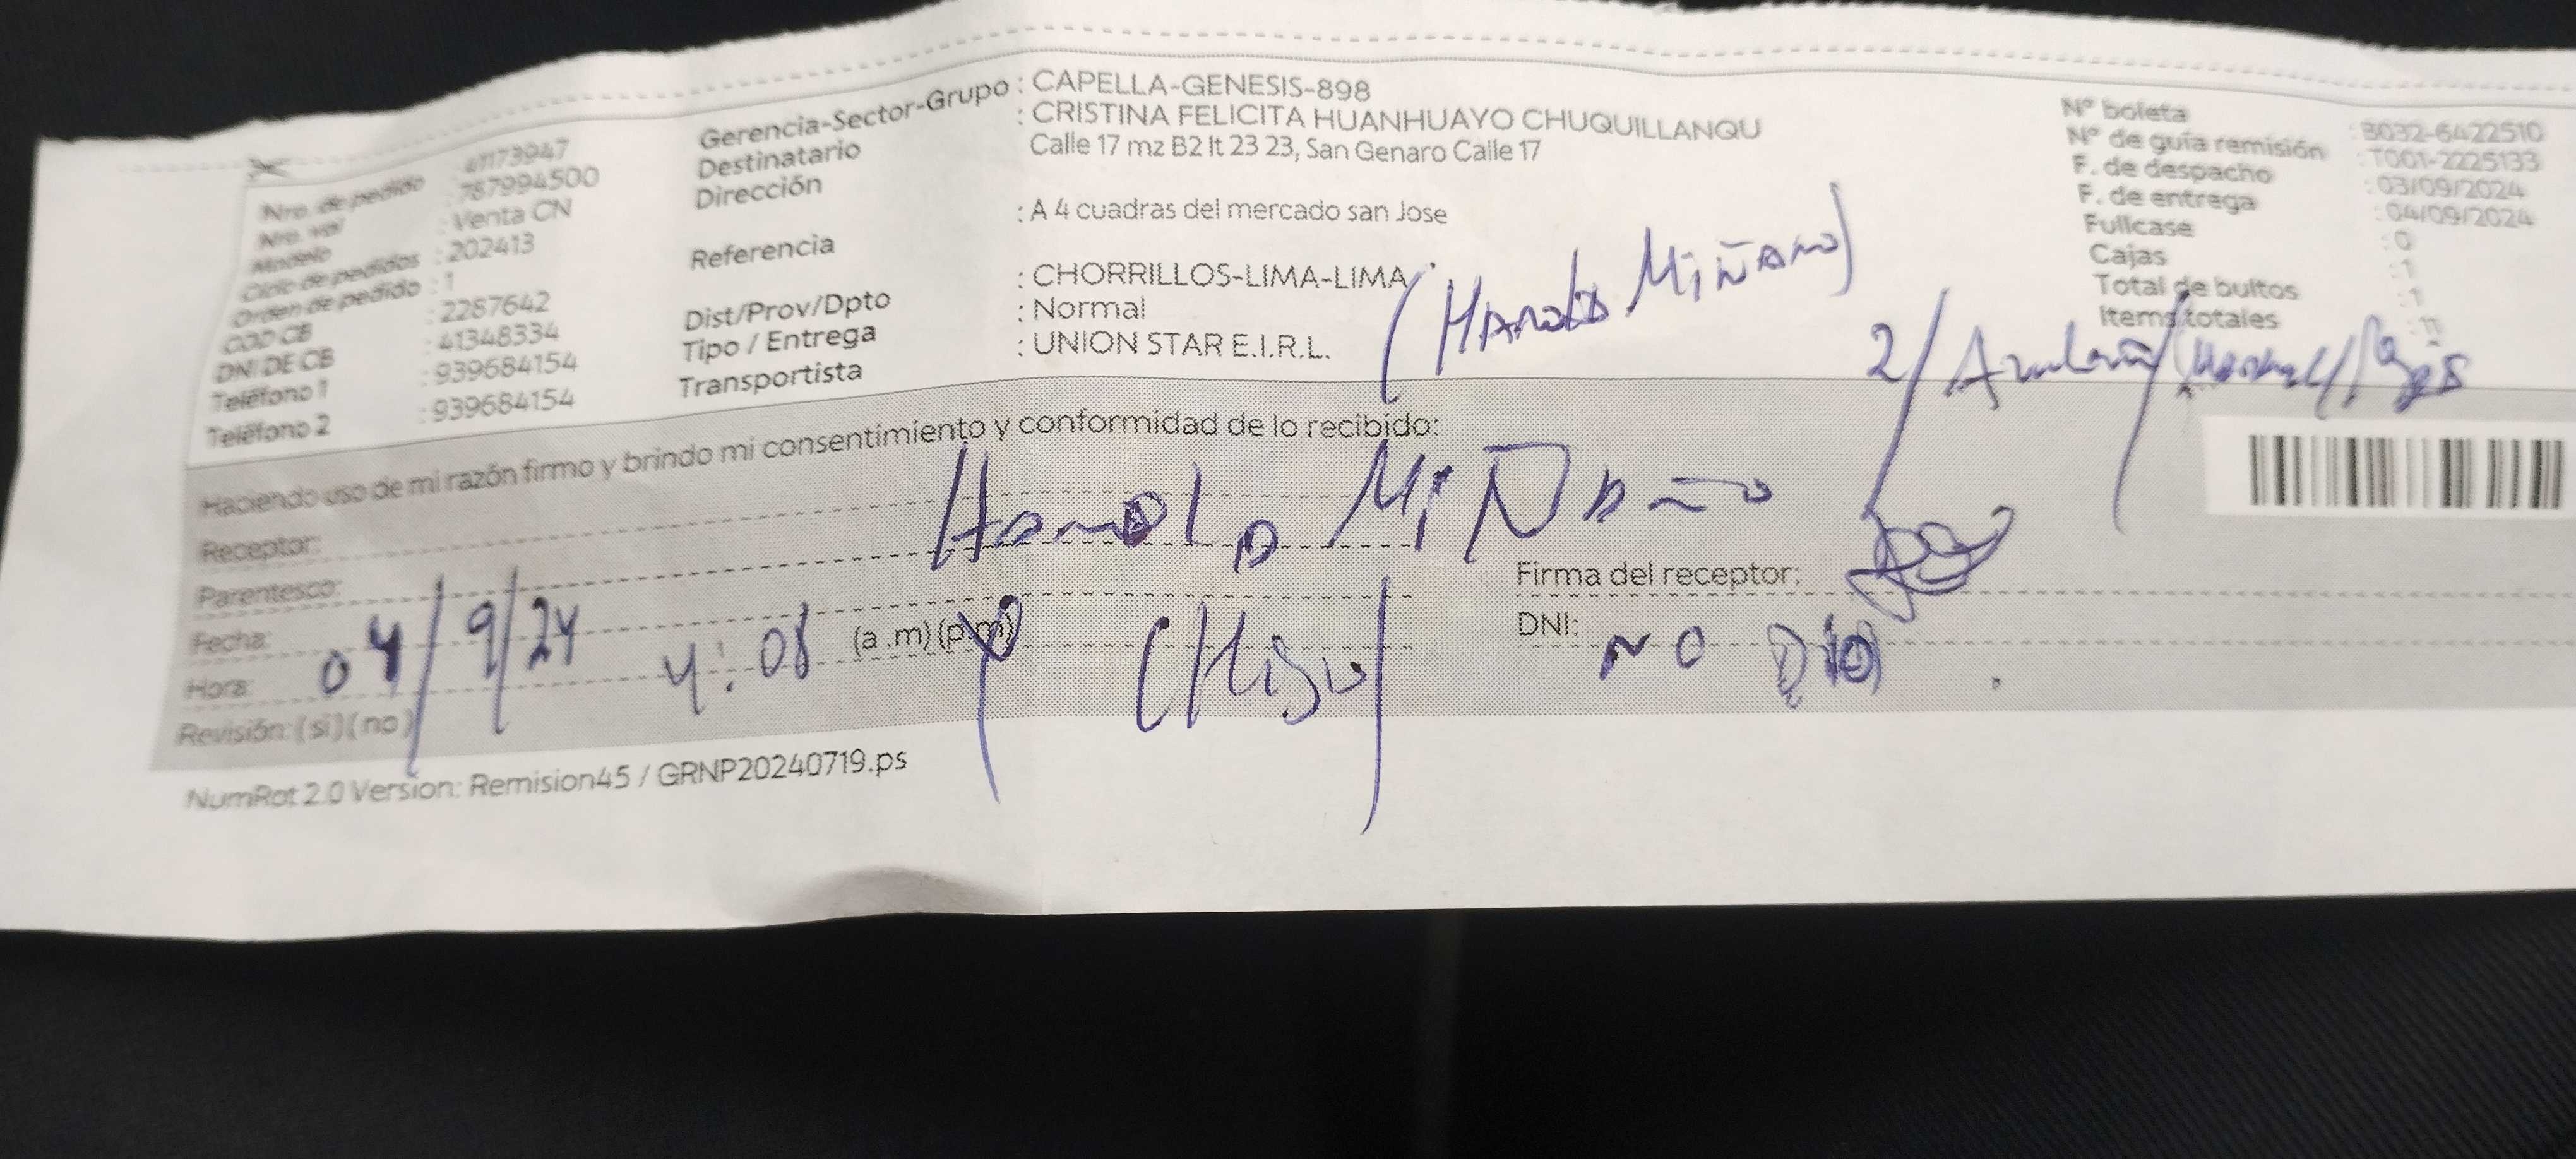 Nro. de pedido : 41173947
Nro. val : 787994500
Modelo : Venta CN
Ciclo de pedidos : 202413
Orden de pedido : 1
COD CB : 2287642
DNI DE CB : 41348334
Teléfono 1 : 939684154
Teléfono 2 : 939684154
Gerencia-Sector-Grupo : CAPELLA-GENESIS-898
Destinatario : CRISTINA FELICITA HUANHUAYO CHUQUILLANQU
Dirección Calle 17 mz B2 lt 23 23, San Genaro Calle 17
Referencia : A 4 cuadras del mercado san Jose
Dist/Prov/Dpto : CHORRILLOS-LIMA-LIMA
Tipo / Entrega : Normal
Transportista : UNION STAR E.I.R.L.
(Harold Miñano)
Nº boleta : B032-6422510
Nº de guía remisión : T001-2225133
F. de despacho : 03/09/2024
F. de entrega : 04/09/2024
Fullcase : 0
Cajas : 1
Total de bultos : 1
Items totales : 11
2/
Haciendo uso de mi razón firmo y brindo mi consentimiento y conformidad de lo recibido:
Receptor: Harold Miñano
Parentesco: (Hijo)
Fecha: 04/9/24
Hora: 4:08 (a.m)(p.m)
Revisión: (si)(no)
Firma del receptor:
DNI: NO DIO
NumRot 2.0 Version: Remision45 / GRNP20240719.ps